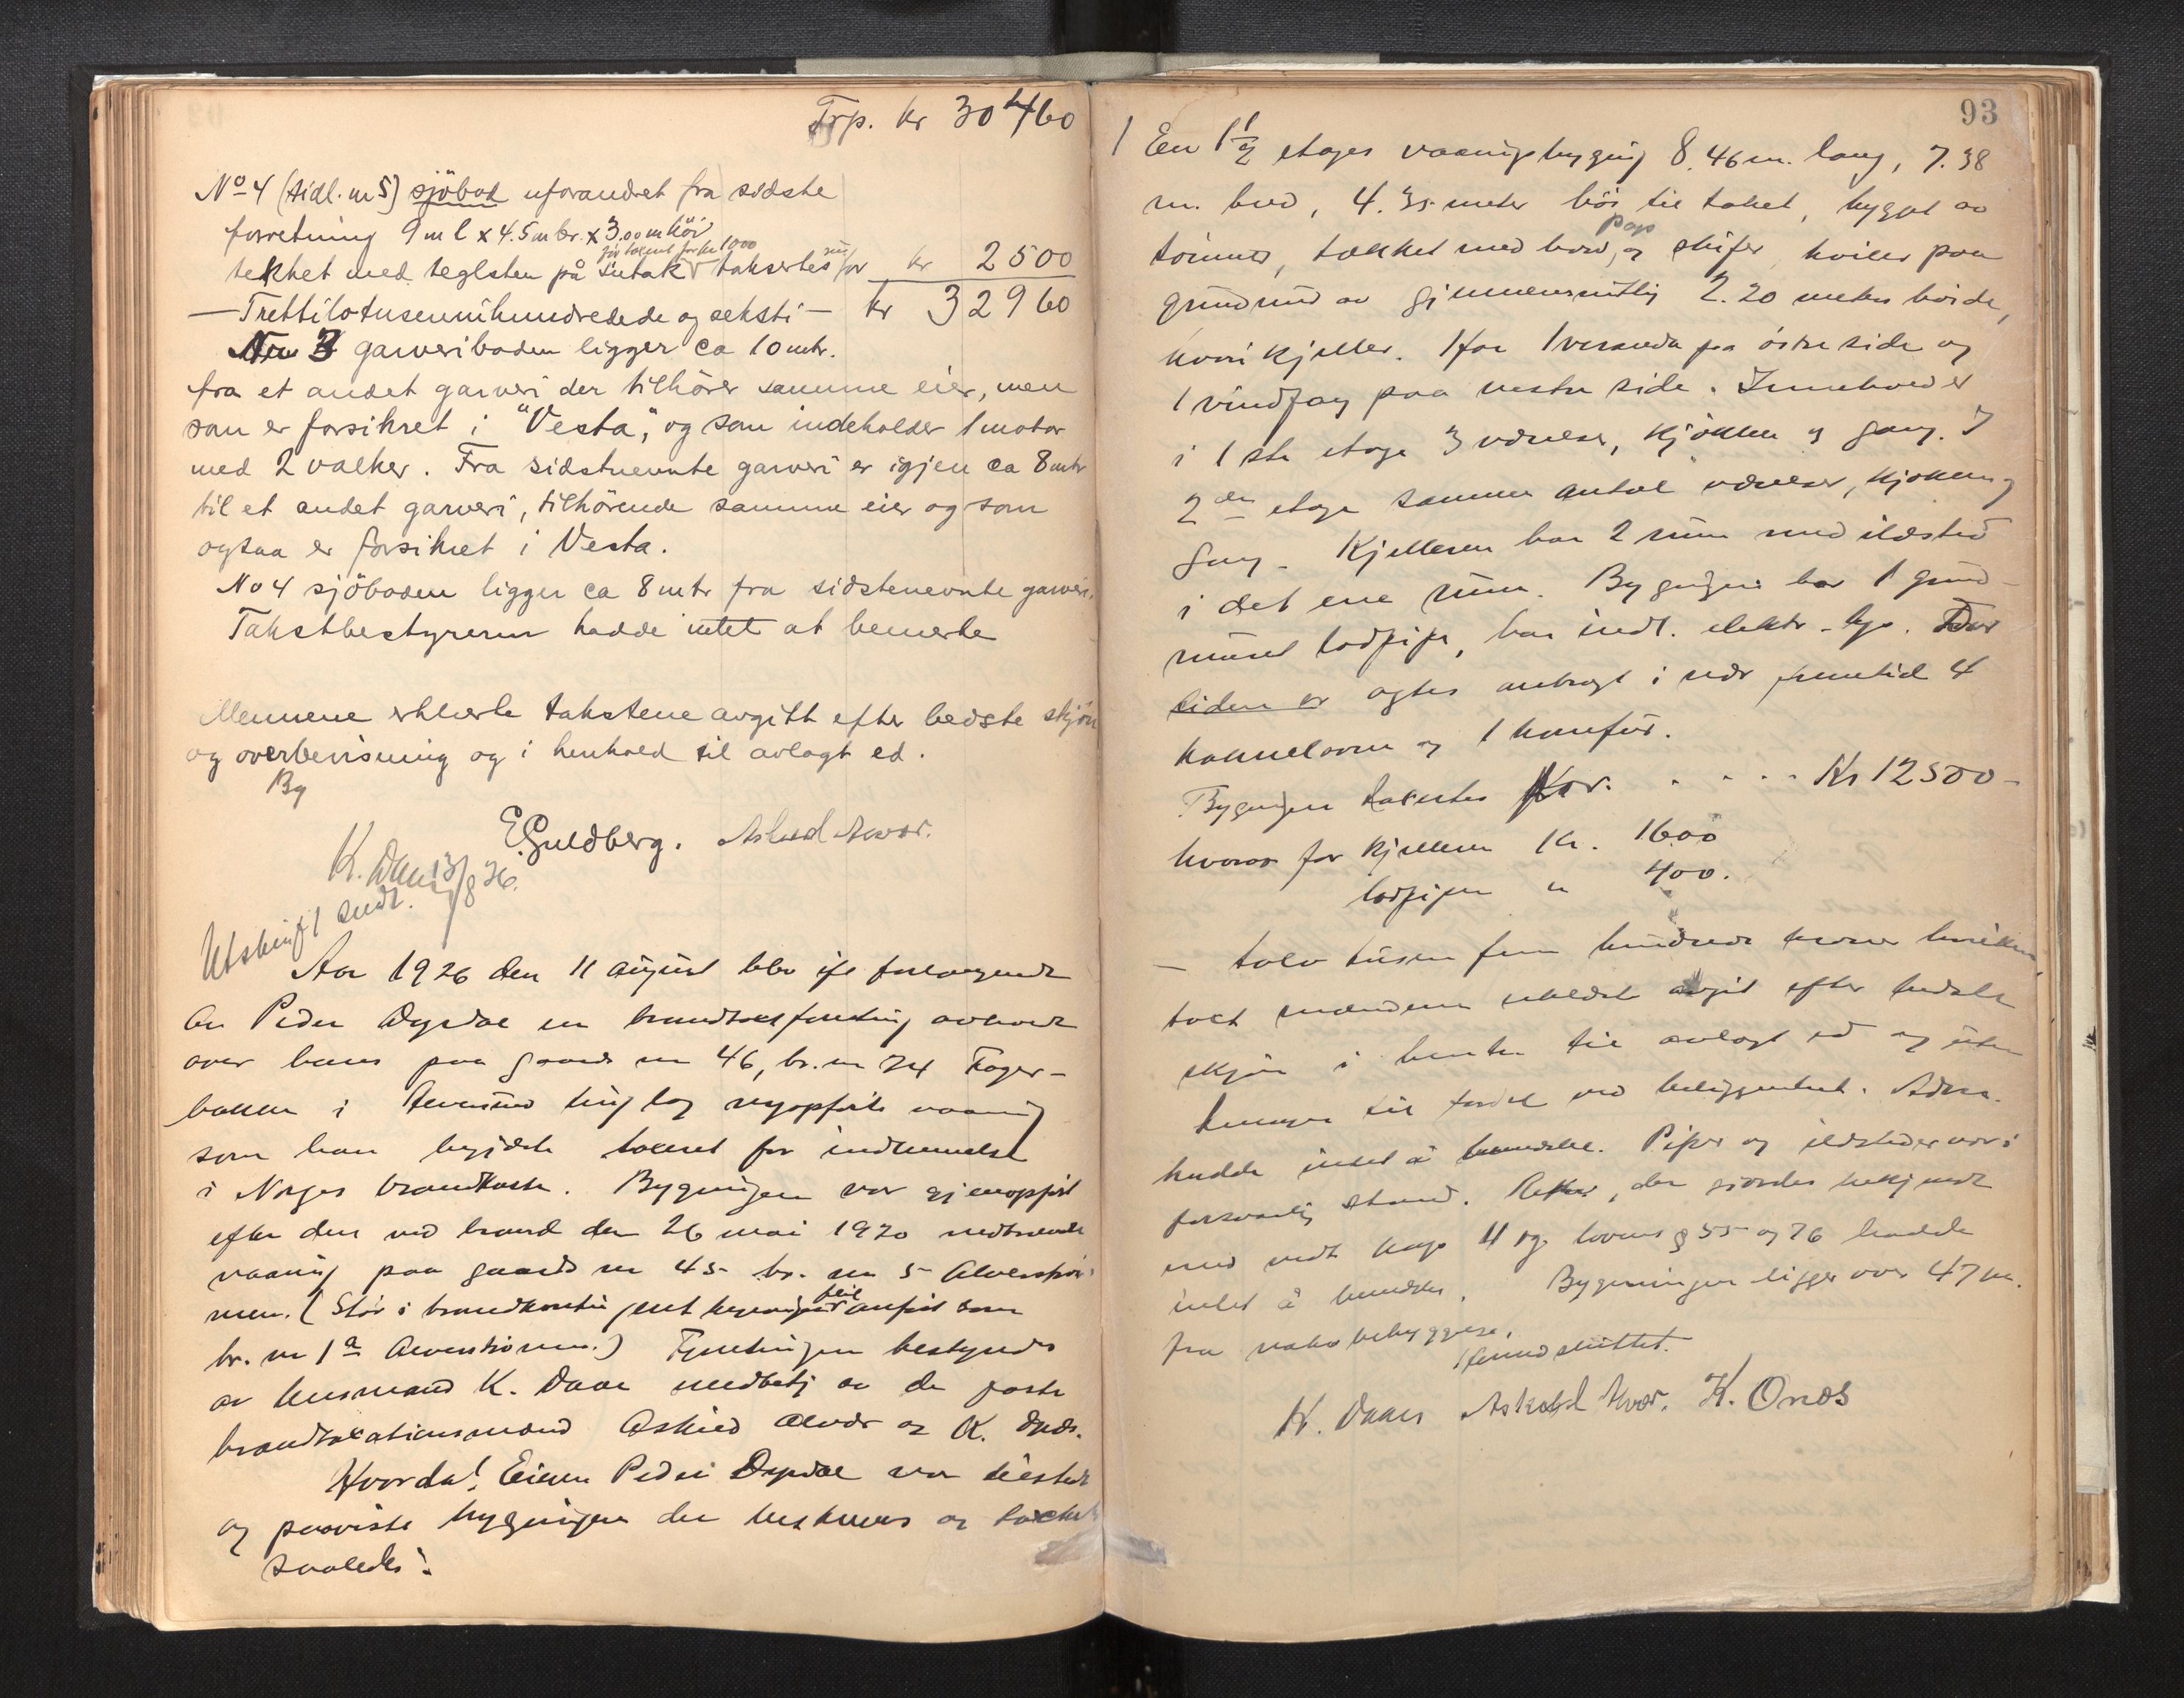 Trp. kr 30460
No 4 (tidl. nr 5) sjöbod uforandret fra sidste
forretning 9 m l x 4.5 m br. x 3.00 m höi
för taxert for kr 1000
tekket med teglsten på sutak taksertes for kr 2500
— Trettilotusennihundredede og seksti — kr 32960
Nr 3 garveriboden ligger ca 10 mtr.
fra et andet garveri der tilhörer samme eier, men
som er forsikret i "Vesta", og som indeholder 1 motor
med 2 valker. Fra sidstnevnte garveri er igjen ca 8 mtr
til et andet garveri, tilhörende samme eier og som
ogsaa er forsikret i Vesta.
No 4 sjöboden ligger ca 8 mtr fra sidstenevnte garveri.
Takstbestyreren hadde intet at bemerke
Mennene erklærte takstene avgitt efter bedste skjön
og overbevisning og i henhold til avlagt ed.
By
E. Guldberg. Askild Alvær.
K. Daae
Utskrift sendt. 13/8 26.
Aar 1926 den 11 august blev ifl forlangende
av Peder Dyrdal en brandtakstforretning avholdt
over hans paa gaards nr 46, br. nr 74 Fager-
bakken i Alversund tinglag nyopförte vaaning
som han begjærte taksert for indlemmelse
i Norges brandkasse. Bygningen var gjenopfört
efter den ved brand den 26 mai 1920 nedbrændte
vaaning paa gaards nr 45 br. nr 5 Alverströ-
men. (Står i brandkontin feil anfört som
br. nr 1a Alverströmmen.) Forretningen bestyrdes
av lensmand K. Daae med av de faste
brandtaxationsmænd Askild Alvær og K. Onæs.
Hvorda! Eieren Peder Dyrdal var tilstede
og paaviste bygningen der beskrives og takseres
saaledes:
93
1 En 1 1/2 etages vaaningsbygning 8.46 m. lang, 7.38
m. bred, 4.35 meter höi til taket, bygget av
papp
tömmer, tækket med bord, og skifer, hviler paa
grundmur av gjennemsnitlig 2.20 meters höide,
hvori kjeller. Har 1 veranda paa östre side og
1 vindfang paa vestre side. Inneholder
i 1ste etage 3 værelser, kjökken og gang. I
2den etage samme antal værelser, kjökken og
gang. Kjelleren har 2 rum med ildsted
i det ene rum. Bygningen har 1 grund-
muret lodpipe, har indl. elektr. lys. Der
siden er agtes anbragt i nær fremtid 4
kakkelovne og 1 komfür.
Bygningen takseres for . . . . Kr 12500 -
hvorav for kjelleren Kr. 1600
lodpipen " 400.
— tolv tusen fem hundrede kroner hvilken
takst mændene erklærte avgit efter bedste
skjön i henhold til avlagt ed og uten
hensyn til fordel ved beliggenhet.
hadde intet å bemerke. Piper og ildsteder var i
forsvarlig stand. der gjordes bekjendt
med vedt kap 11 og lovens § 55 og 76 hadde
intet å bemerke. Bygningen ligger over 47 m.
fra nabobebyggelse.
Forr. sluttet.
K. Daae Askild Alvær. K. Onæs